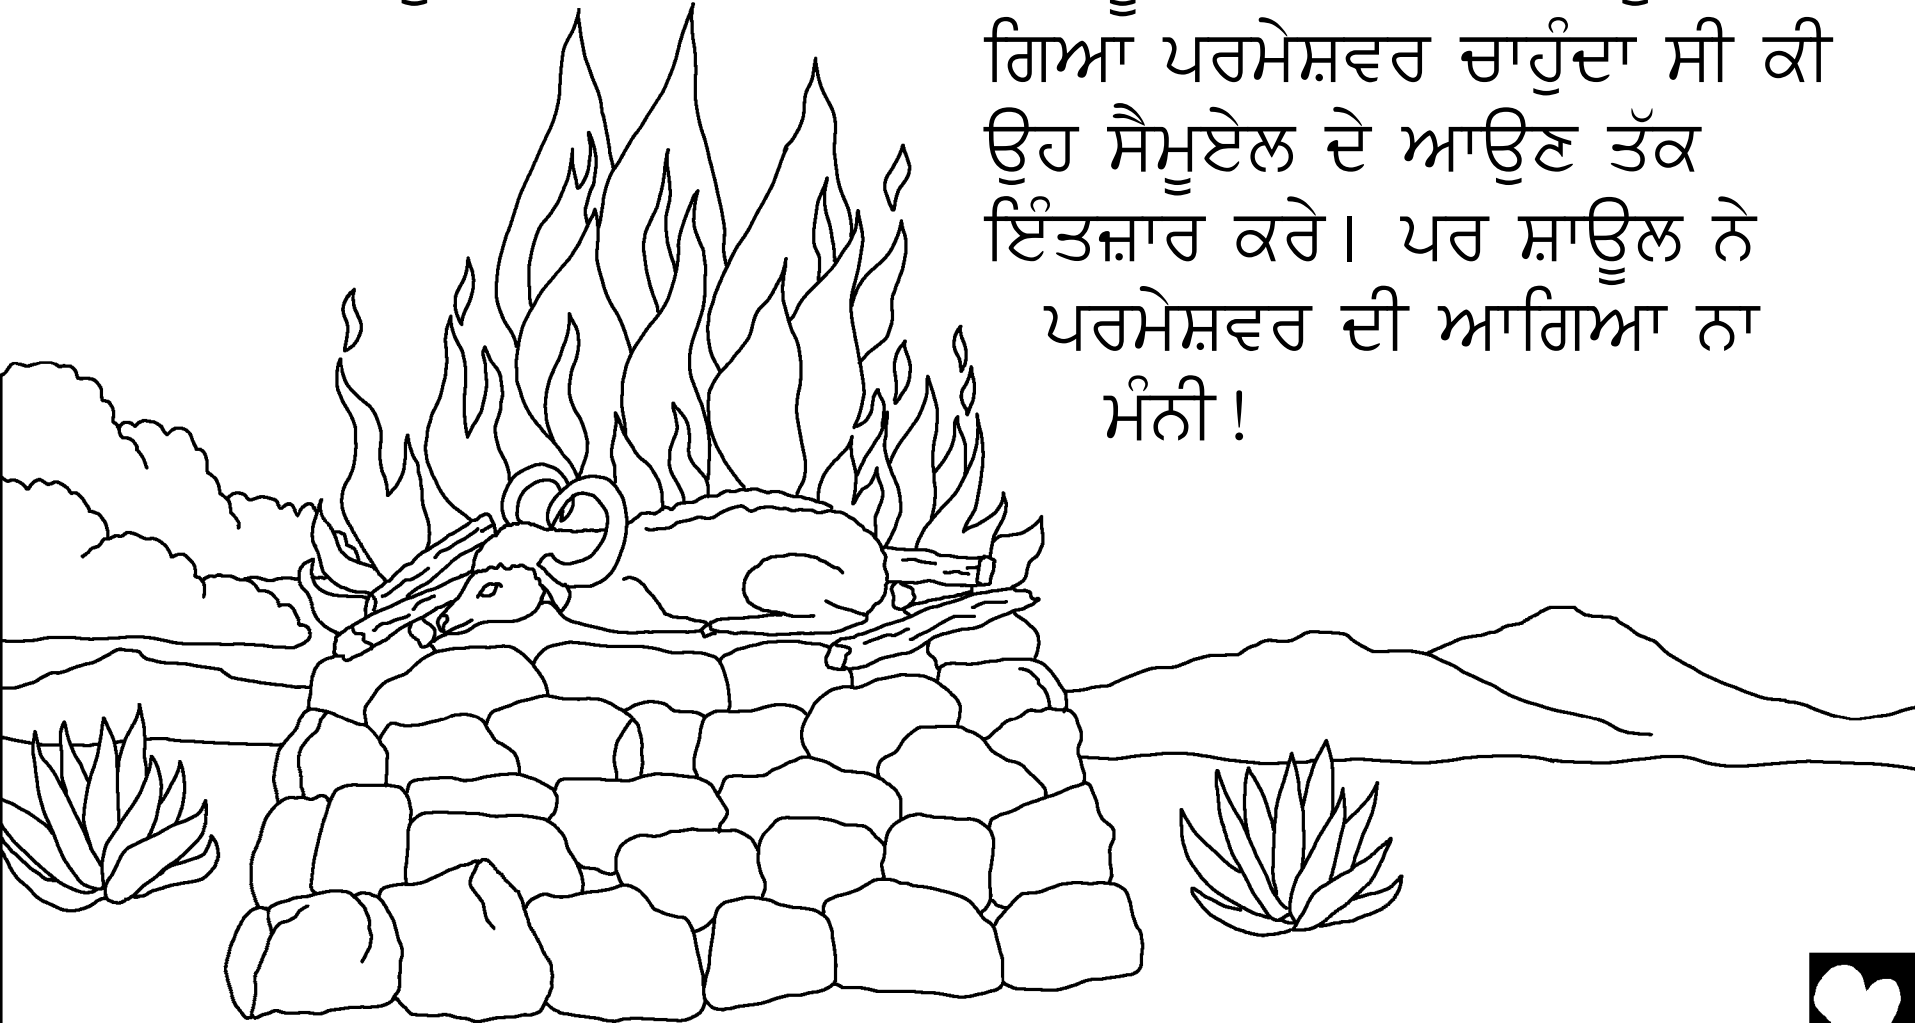 ਗਿਆ ਪਰਮੇਸ਼ਵਰ ਚਾਹੁੰਦਾ ਸੀ ਕੀ
ਉਹ ਸੈਮੂਏਲ ਦੇ ਆਉਣ ਤੱਕ
ਇੰਤਜ਼ਾਰ ਕਰੇ। ਪਰ ਸ਼ਾਊਲ ਨੇ
ਪਰਮੇਸ਼ਵਰ ਦੀ ਆਗਿਆ ਨਾ
ਮੰਨੀ!